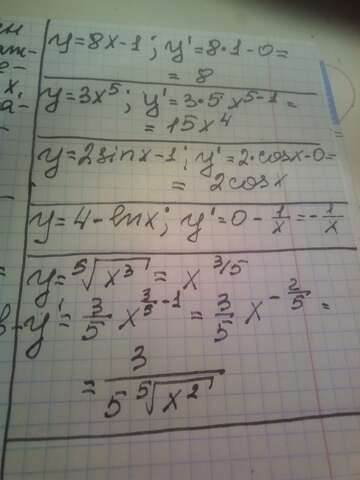 ен
аж-
е-
х.
а-
y=8x-1; y'=8·1-0=
= 8
y=3x⁵; y'=3·5x⁵⁻¹=
= 15x⁴
y=2sinx-1; y'=2·cosx-0=
= 2cosx
y=4-lnx; y'=0-1/x=-1/x
y=⁵√x³=x^3/5
y'=3/5 x^3/5-1 = 3/5 x^-2/5 =
= 3/(5 ⁵√x²)